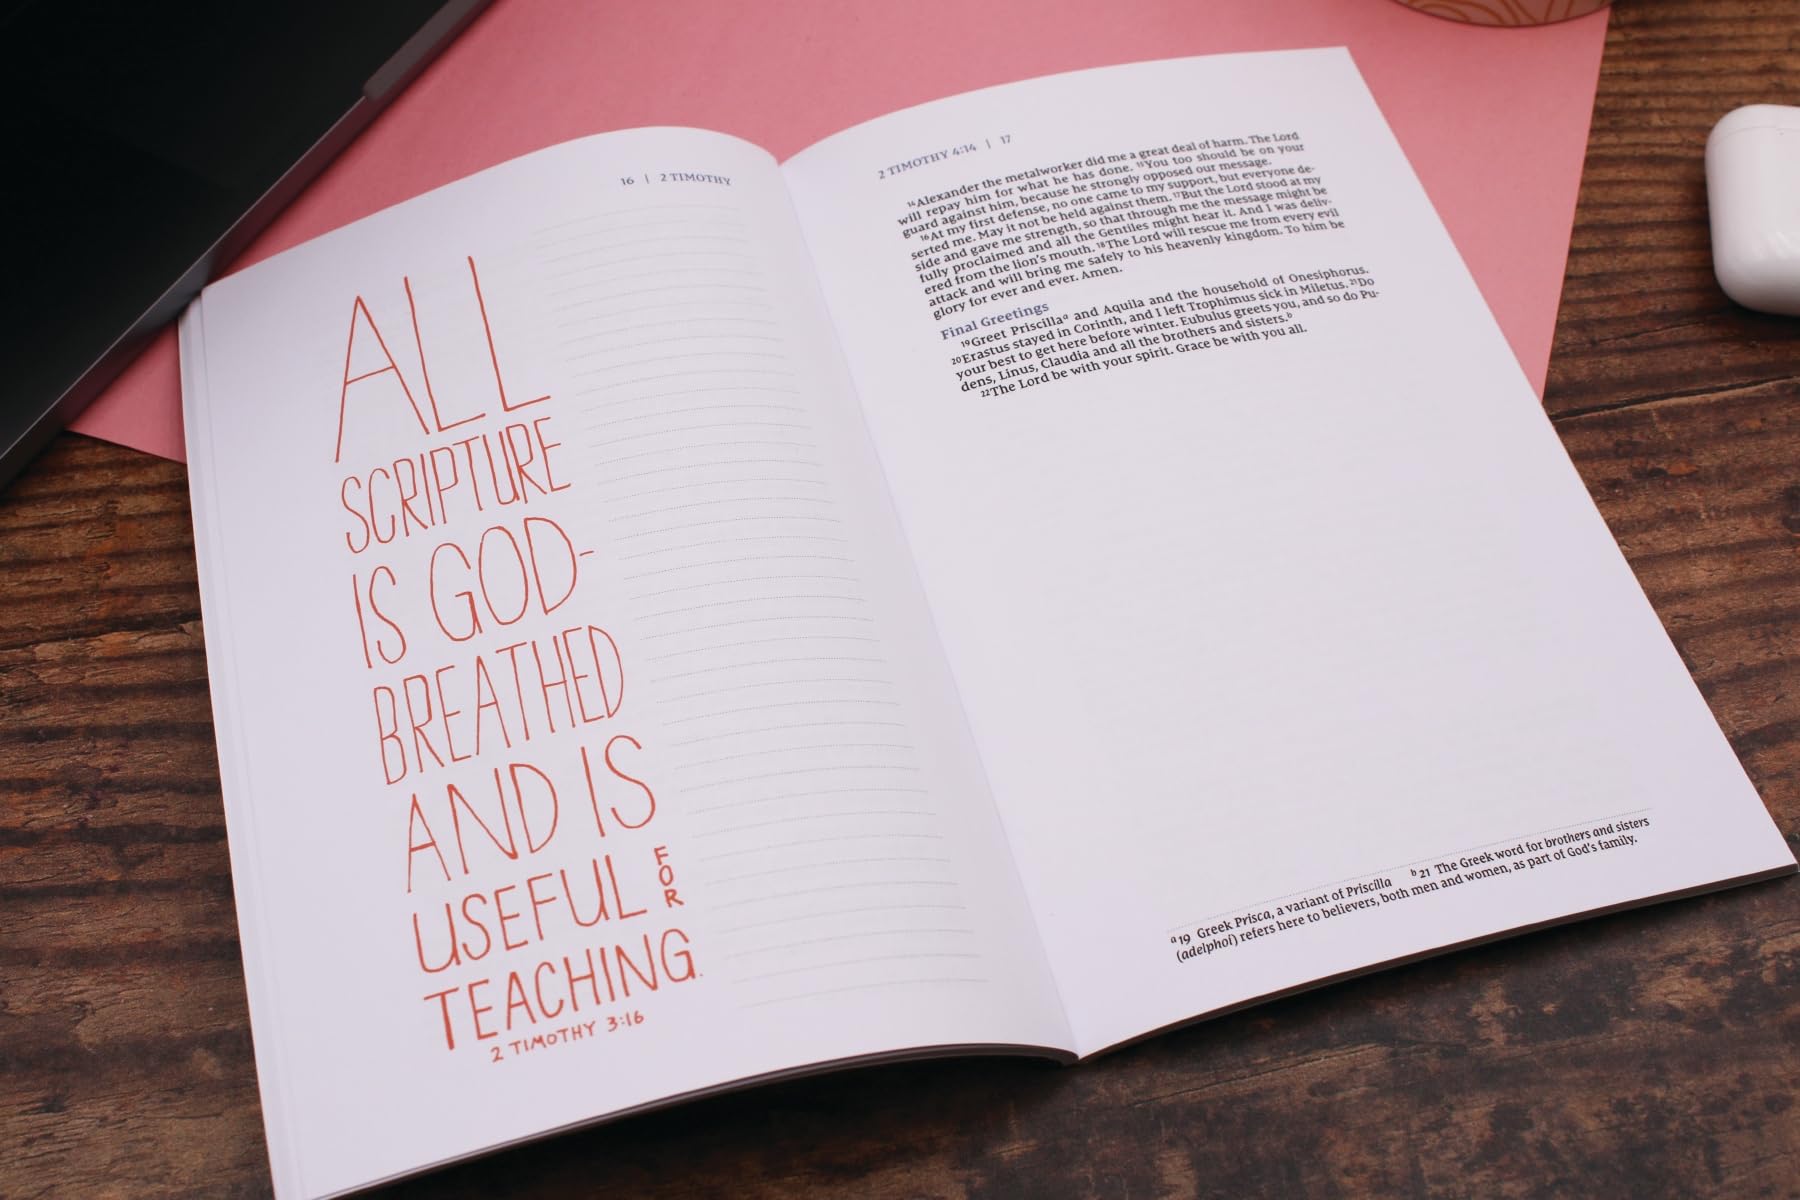 16 | 2 TIMOTHY
ALL
SCRIPTURE
IS GOD-
BREATHED
AND IS
USEFUL FOR
TEACHING.
2 TIMOTHY 3:16
2 TIMOTHY 4:14 | 17
14Alexander the metalworker did me a great deal of harm. The Lord
will repay him for what he has done. 15You too should be on your
guard against him, because he strongly opposed our message.
16At my first defense, no one came to my support, but everyone de-
serted me. May it not be held against them. 17But the Lord stood at my
side and gave me strength, so that through me the message might be
fully proclaimed and all the Gentiles might hear it. And I was deliv-
ered from the lion's mouth. 18The Lord will rescue me from every evil
attack and will bring me safely to his heavenly kingdom. To him be
glory for ever and ever. Amen.
Final Greetings
19Greet Priscillaa and Aquila and the household of Onesiphorus.
20Erastus stayed in Corinth, and I left Trophimus sick in Miletus. 21Do
your best to get here before winter. Eubulus greets you, and so do Pu-
dens, Linus, Claudia and all the brothers and sisters.b
22The Lord be with your spirit. Grace be with you all.
a 19 Greek Prisca, a variant of Priscilla b 21 The Greek word for brothers and sisters
(adelphoi) refers here to believers, both men and women, as part of God's family.